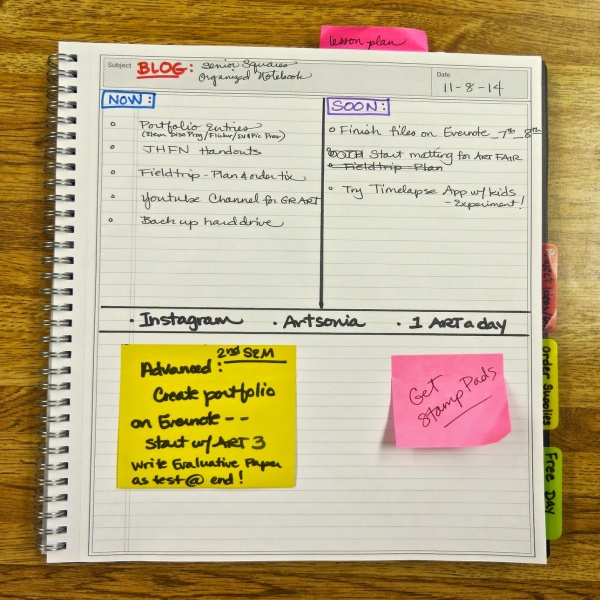 lesson plan
Subject BLOG: Senior Squares
Organized Notebook
Date
11-8-14
NOW:
Portfolio Entries
JHFN Handouts
Fieldtrip - Plan & order tix
Youtube Channel for GR ART
Back up harddrive
SOON:
Finish files on Evernote_7th_8th
Start matting for ART FAIR
Fieldtrip Plan
Try Timelapse App w/ kids
- Experiment!
· Instagram · Artsonia · 1 ART a day
2nd SEM
Advanced:
Create portfolio
on Evernote --
Start w/ ART 3
Write Evaluative Paper
as test @ end!
Get
Stamp Pads
Order Supplies
Free Day